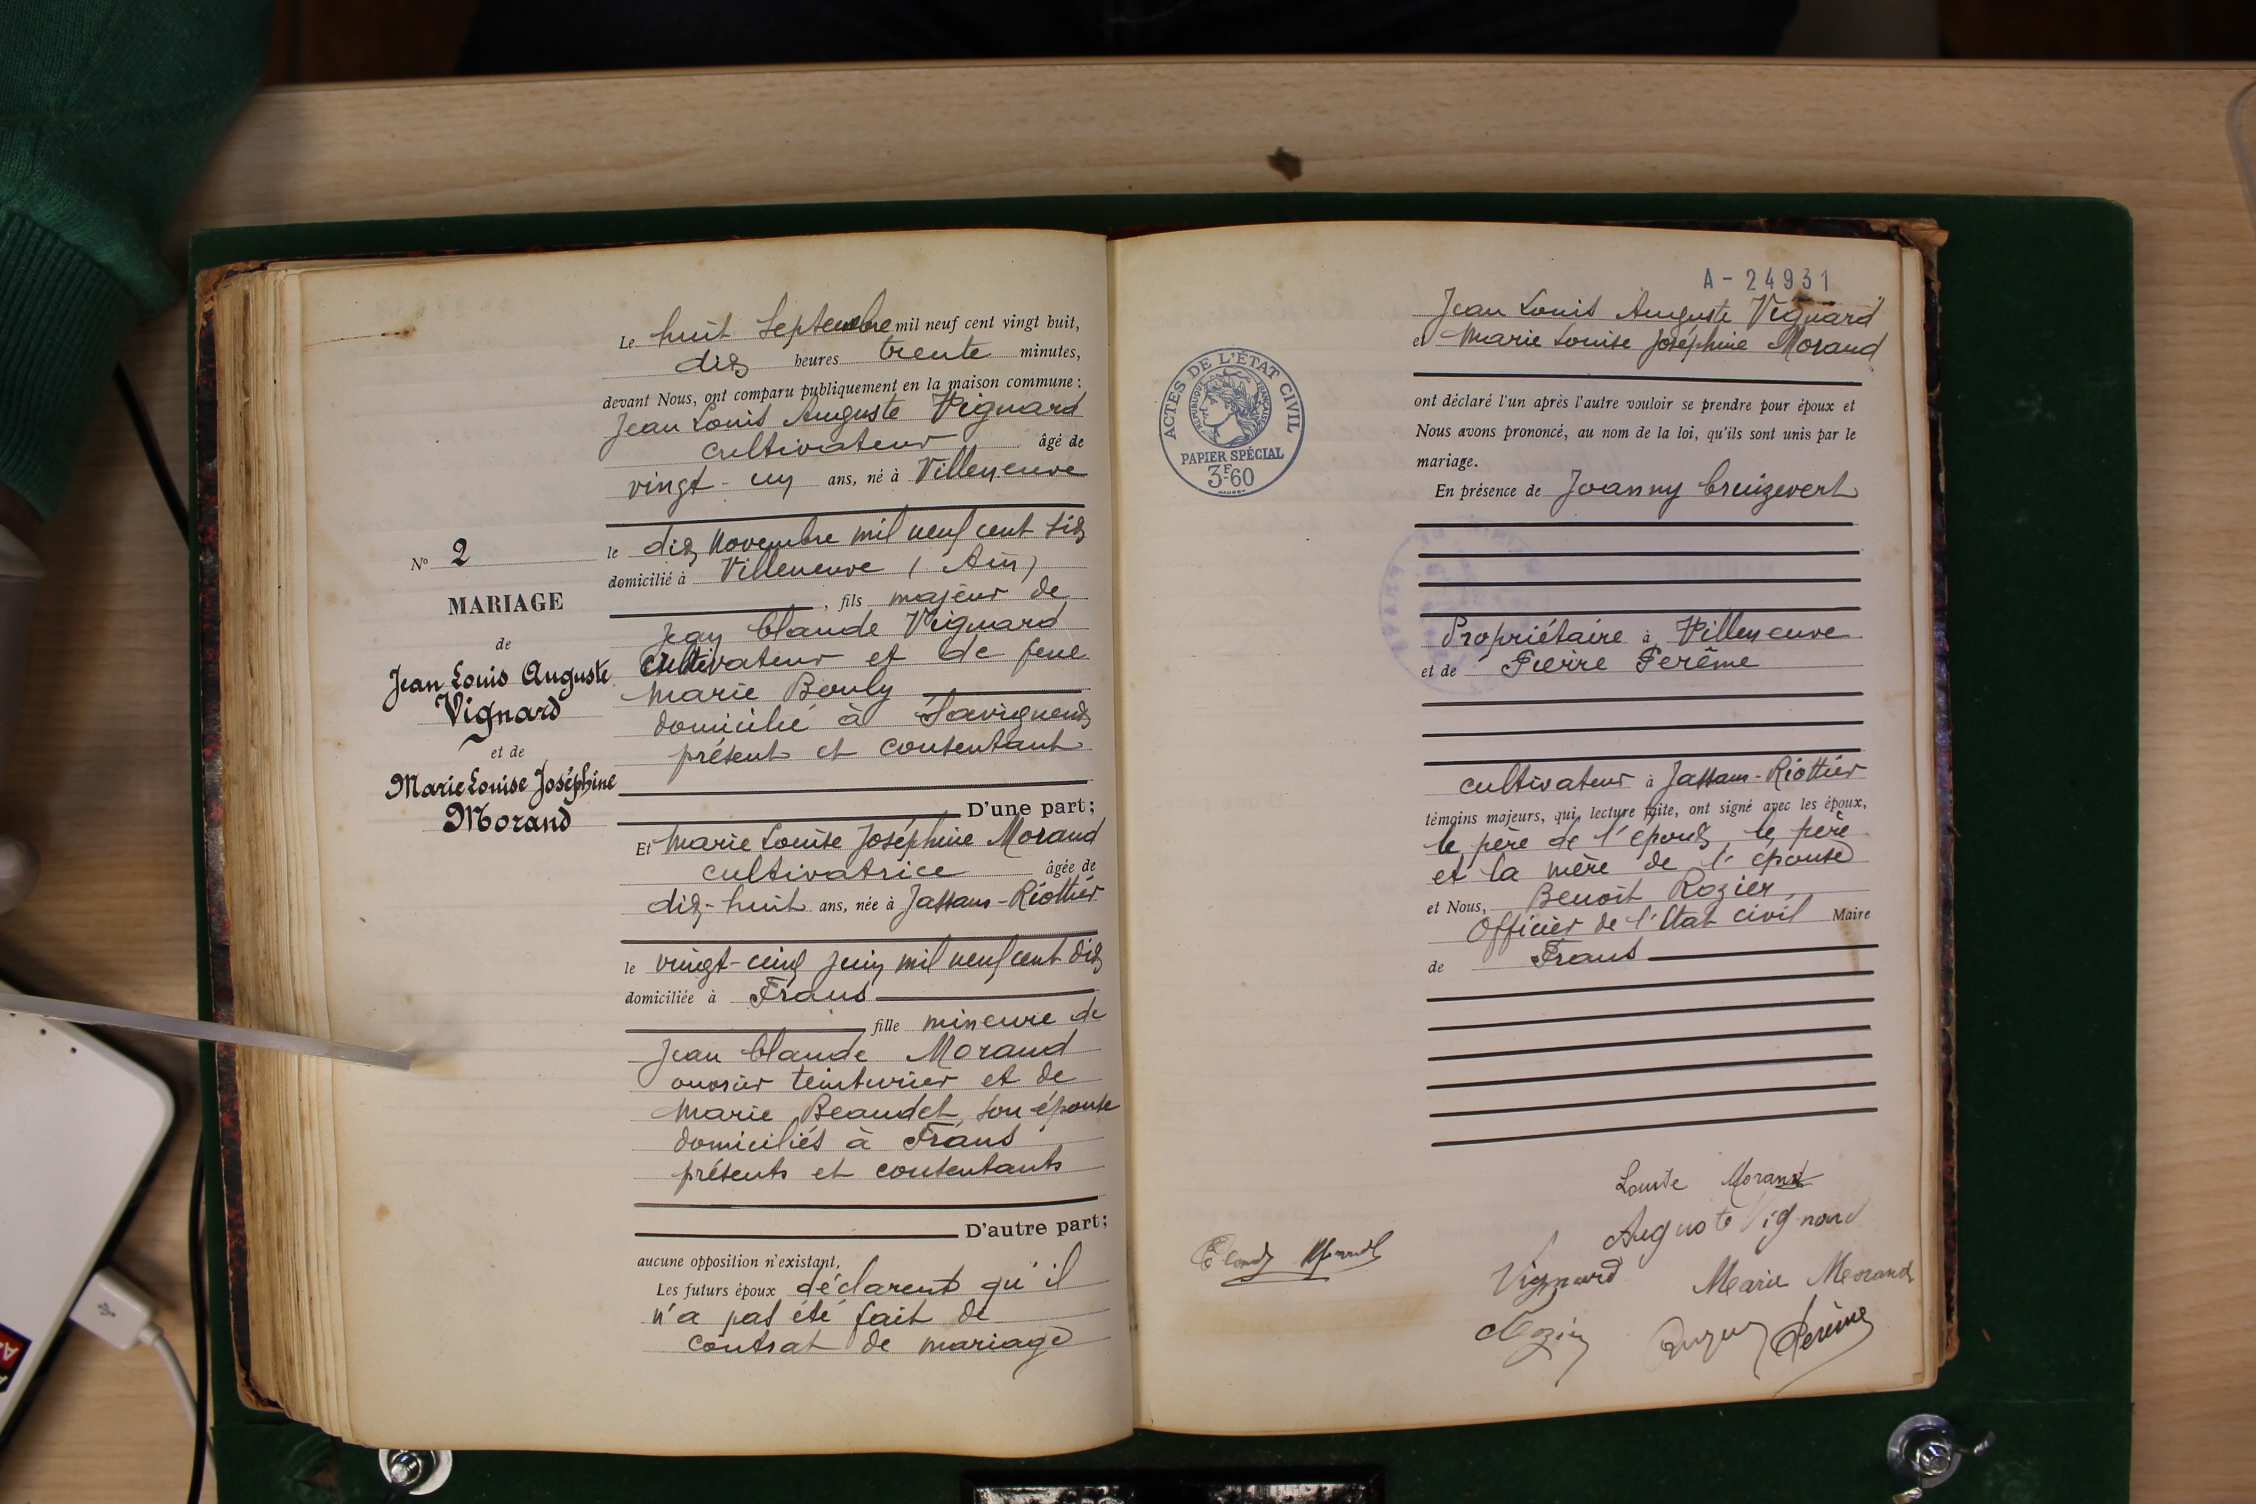 Le huit Septembre mil neuf cent vingt huit,
dix heures trente minutes,
devant Nous, ont comparu publiquement en la maison commune :
Jean Louis Auguste Vignard
cultivateur âgé de
vingt-un ans, né à Villeneuve
le dix Novembre mil neuf cent six
domicilié à Villeneuve (Ain)
, fils majeur de
Jean Claude Vignard
cultivateur et de feue
Marie Bouly
domicilié à Savigneux
présent et consentant
D'une part;
Et Marie Louise Joséphine Morand
cultivatrice âgée de
dix-huit ans, née à Jassans-Riottier
le vingt-cinq juin mil neuf cent dix
domiciliée à Frans
fille mineure de
Jean Claude Morand
ouvrier teinturier et de
Marie Beaudet, son épouse
domiciliés à Frans
présents et consentants
D'autre part;
aucune opposition n'existant,
Les futurs époux déclarent qu'il
n'a pas été fait de
contrat de mariage
No 2
MARIAGE
de
Jean Louis Auguste
Vignard
et de
Marie Louise Joséphine
Morand
A-24931
Jean Louis Auguste Vignard
et Marie Louise Joséphine Morand
ACTES DE L'ÉTAT CIVIL
RÉPUBLIQUE FRANÇAISE
PAPIER SPÉCIAL
3F.60
ont déclaré l'un après l'autre vouloir se prendre pour époux et
Nous avons prononcé, au nom de la loi, qu'ils sont unis par le
mariage.
En présence de Joanny Cruizevert
Propriétaire à Villeneuve
et de Pierre Perême
cultivateur à Jassans-Riottier
témoins majeurs, qui, lecture faite, ont signé avec les époux,
le père de l'époux, le père
et la mère de l'épouse
et Nous, Benoît Rozier,
Officier de l'Etat civil Maire
de Frans
Louise Morand
Auguste Vignard
Vignard Marie Morand
Perême